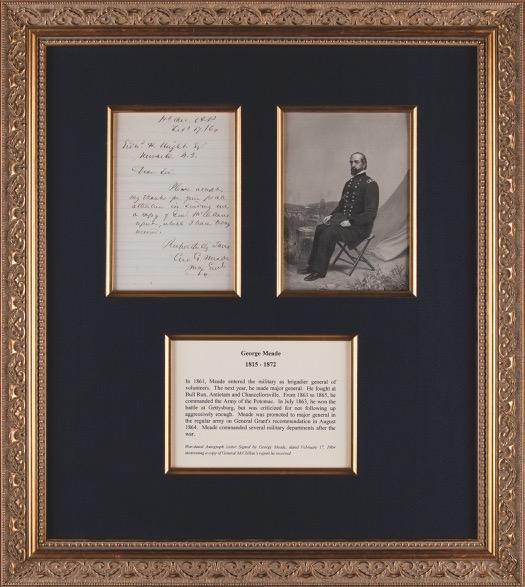 Please accept
my thanks for your polite
attention in sending me
a copy of Genl McClellans
report, which I have
Respectfully Yours
Geo. G. Meade
George Meade
1815 - 1872
In 1861, Meade entered the military as brigadier general of
volunteers. The next year, he made major general. He fought at
Bull Run, Antietam and Chancellorsville. From 1863 to 1865, he
commanded the Army of the Potomac. In July 1863, he won the
battle at Gettysburg, but was criticized for not following up
aggressively enough. Meade was promoted to major general in
the regular army on General Grant's recommendation in August
1864. Meade commanded several military departments after the
war.
War-dated Autograph Letter Signed by George Meade, dated February 17, 1864
mentioning a copy of General McClellan's report he received.